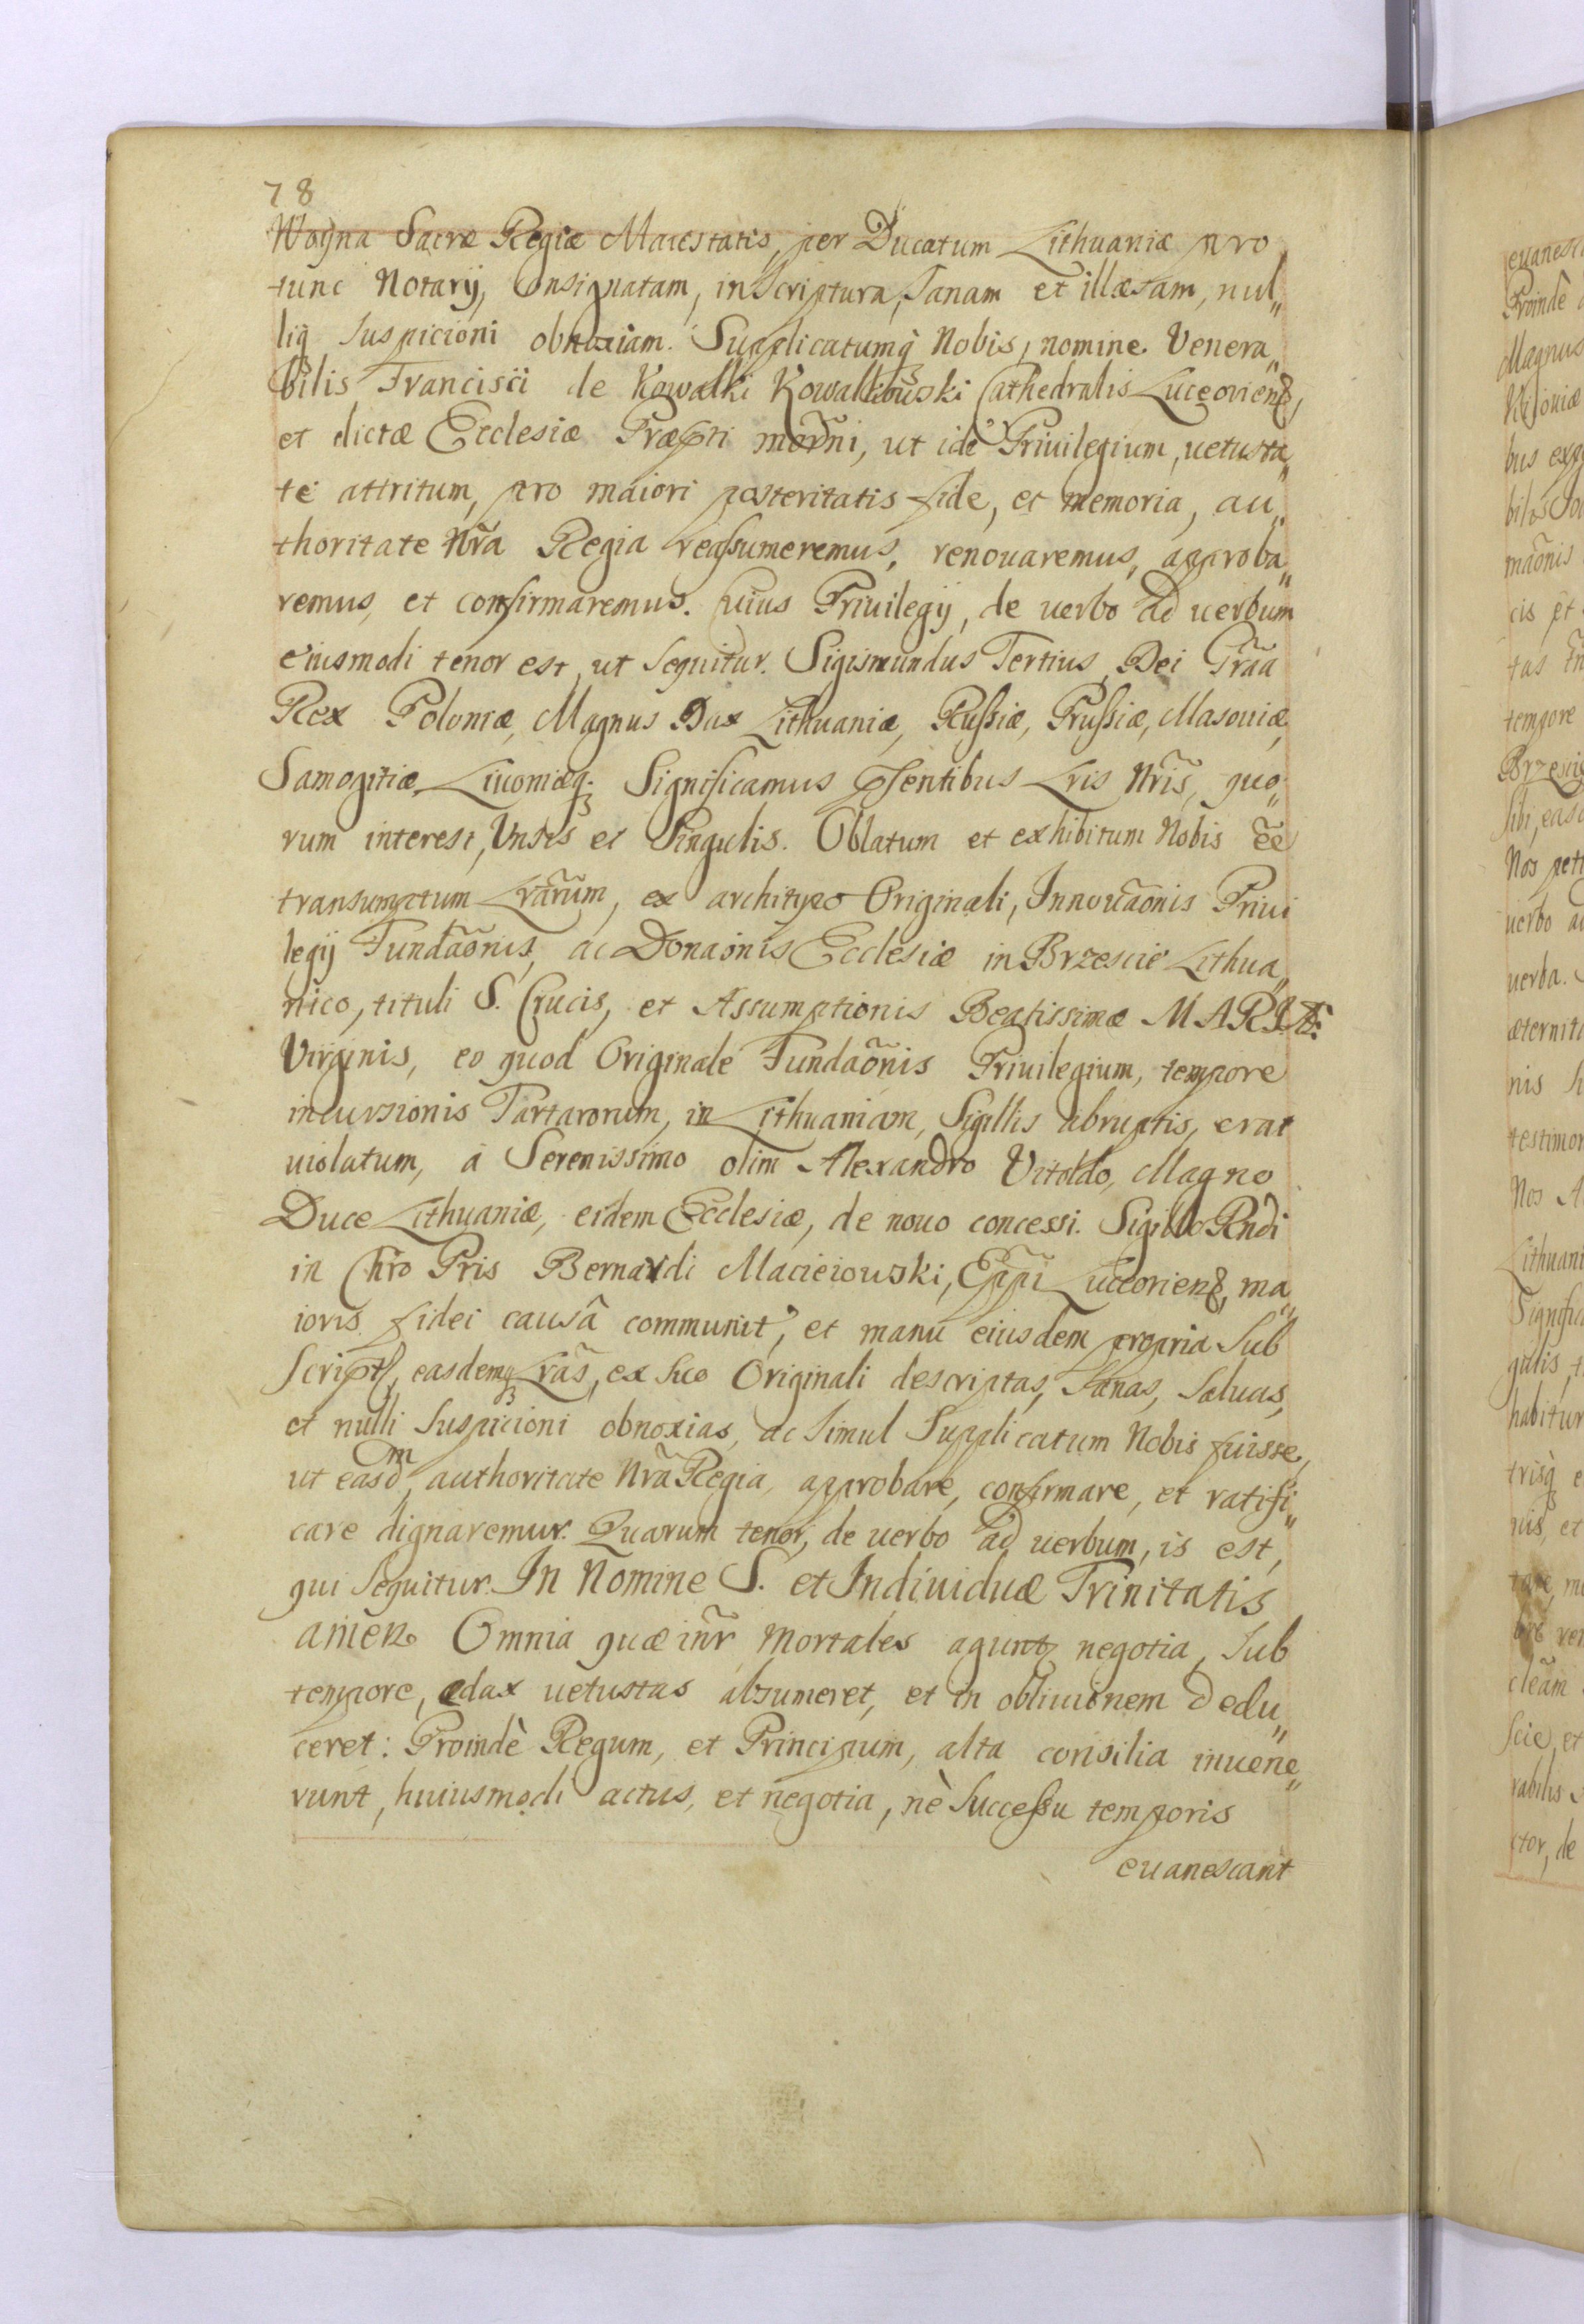 78
Woyna Sacræ Regiæ Maiestatis, per Ducatum Lithuaniæ pro
tunc Notarij, Consignatam, in Scriptura, Sanam et illæsam, nul„
liq Suspicioni obnoxiam. Supplicatumq Nobis, nomine Venera„
bilis Francisci de Kowalki Kowalkowski Cathedralis Luceorien,
et dictæ Ecclesiæ Præpti mõrni, ut idẽ Priuilegium, uetusta„
te attritum, pro maiori posteritatis fide, et memoria, au„
thoritate Nr̃a Regia reassumeremus, renouaremus, approba„
remus, et confirmaremus. Cuius Priuilegij, de uerbo ad uerbum
eiusmodi tenor est, ut Sequitur. Sigismundus Tertius, Dei Gr̃aa
Rex Poloniæ, Magnus Dux Lithuaniæ, Russiæ, Prussiæ, Masouiæ,
Samogitiæ, Liuoniæq; Significamus Psentibus Lris Nr̃is, quo„
rum interest, Vnsis et Singulis. Oblatum et exhibitum Nobis ẽe
transumptum Lrãrum, ex archityro Originali, Innouãonis Priui
legij Fundãonis, ac Donaionis Ecclesiæ in Brzescie Lithua„
nico, tituli S. Crucis, et Assumptionis Beatissimæ MARIÆ
Virginis, eo quod Originale Fundãonis Priuilegium, tempore
incursionis Tartarorum, in Lithuaniam, Sigillis abruptis, erat
uiolatum, à Serenissimo olim Alexandro Vitoldo, Magno
Duce Lithuaniæ, eidem Ecclesiæ, de nouo concessi. Sigillo Rndi
in Chr̃o Pris Bernardi Macieiowski, Epp̃i Luceorien, ma„
ioris fidei causâ communit', et manu eiusdem propria Sub
Script, easdemq Lrãs, ex Suo Originali descriptas, Sanas, Saluas,
et nulli Suspicioni obnoxias, ac Simul Supplicatum Nobis fuisse,
ut easdm, authoritate Nr̃a Regia, approbare, confirmare, et ratifi„
care dignaremur. Quarum tenor, de uerbo ad uerbum, is est,
qui Sequitur. In Nomine S. et Indiuiduæ Trinitatis
amen. Omnia quæ inr̃ Mortales agunt negotia, Sub
tempore, edax uetustas absumeret, et in obliuionem dedu„
ceret: Proindè Regum, et Principum, alta consilia inuene„
runt, huiusmodi actus, et negotia, nè Successu temporis
euanescant